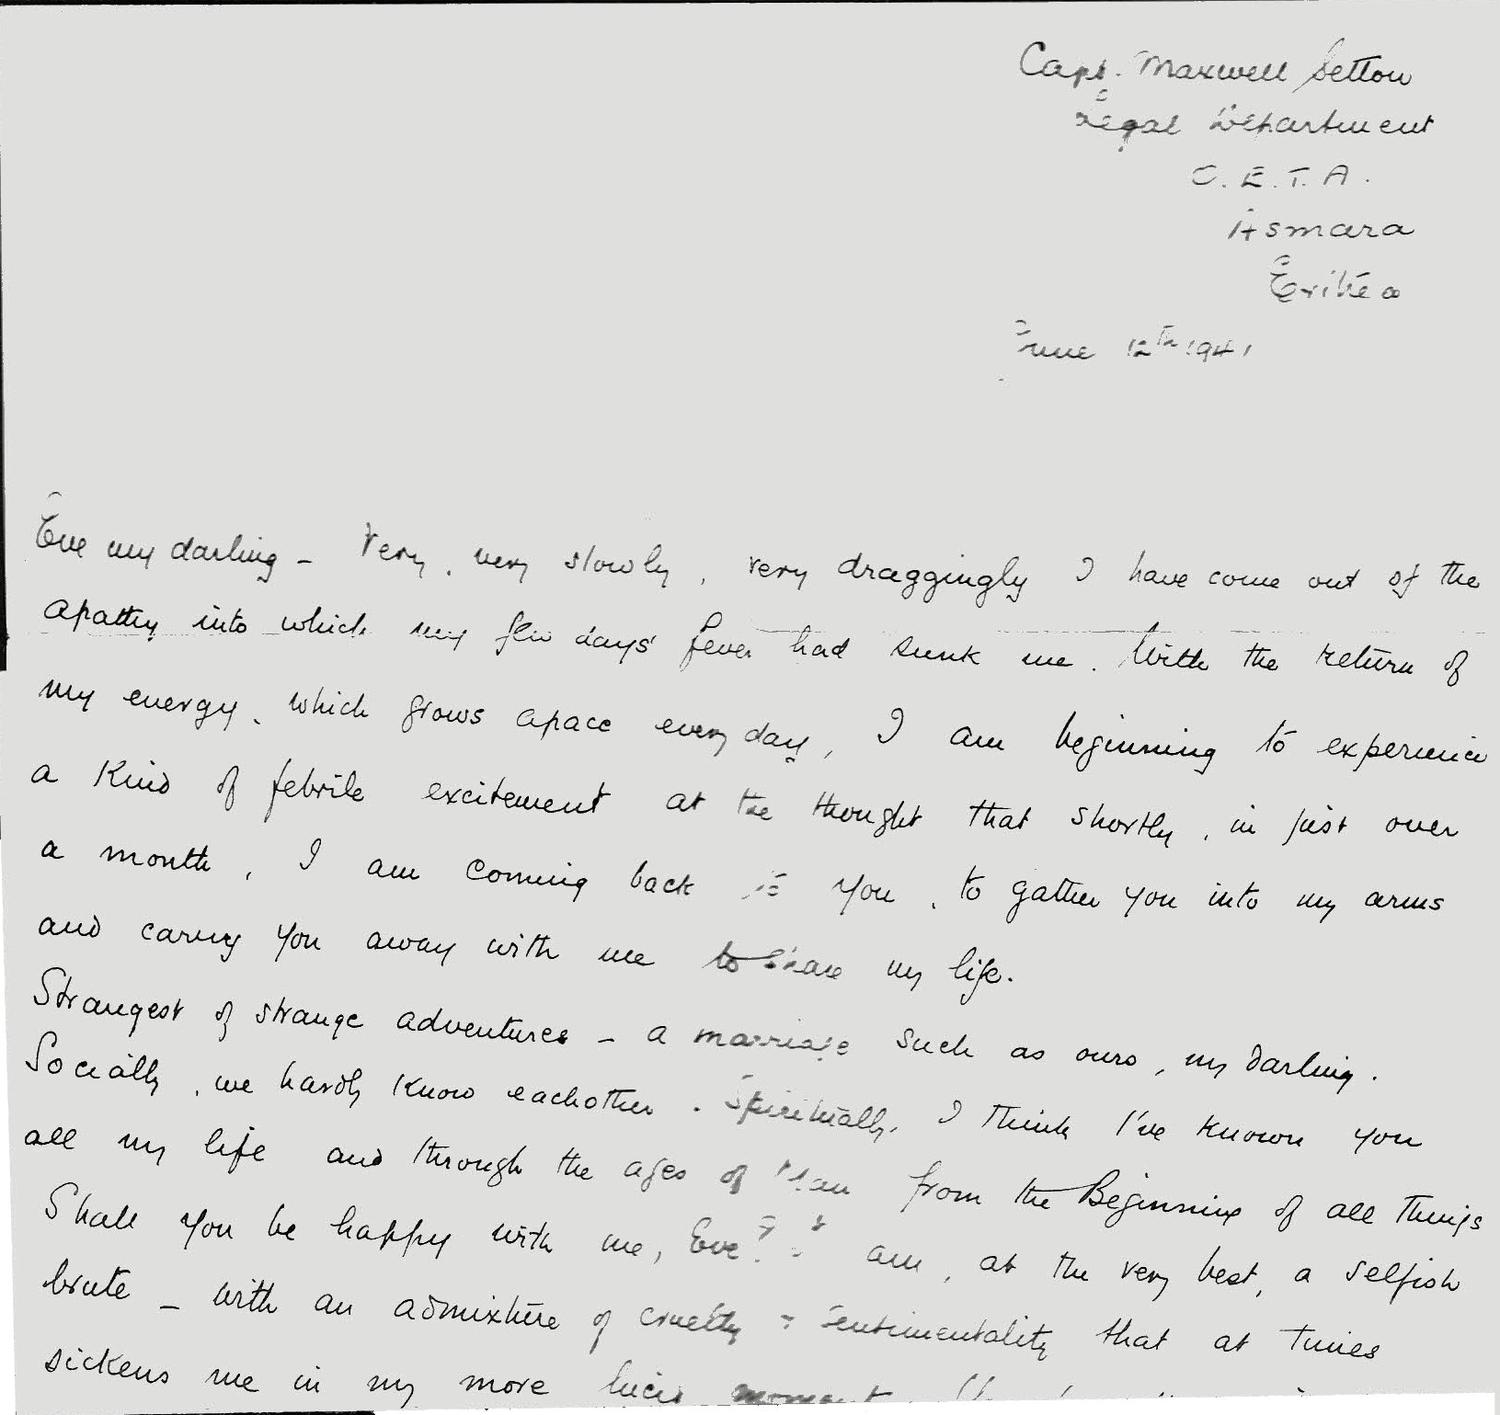 Capt. Maxwell Setton
Legal Department
C.E.T.A.
Asmara
Eritrea
June 12th 1941
Eve my darling – Very, very slowly, very draggingly I have come out of the
apathy into which my few days' fever had sunk me. With the return of
my energy, which grows apace every day, I am beginning to experience
a kind of febrile excitement at the thought that shortly, in just over
a month, I am coming back to you, to gather you into my arms
and carry you away with me to share my life.
Strangest of strange adventures – a marriage such as ours, my darling.
Socially, we hardly know eachother. Spiritually, I think I've known you
all my life and through the ages of Man from the Beginning of all things
Shall you be happy with me, Eve? I am, at the very best, a selfish
brute – with an admixture of cruelty & sentimentality that at times
sickens me in my more lucid moment